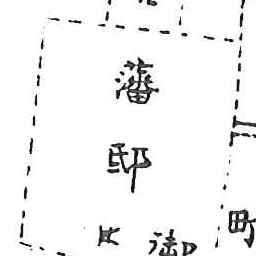 藩邸
御
町